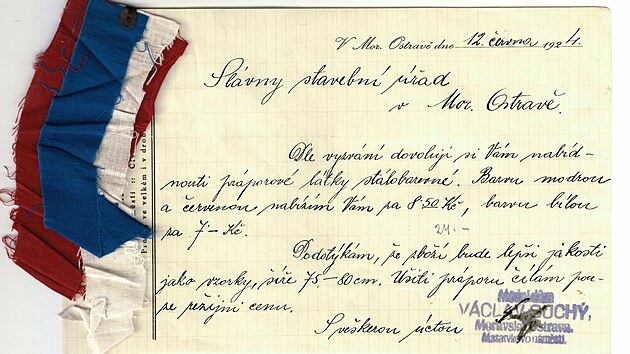 V Mor. Ostravě dne 12. června 1924.
Slávny stavební úřad
v Mor. Ostravě.
Dle vyzvání dovoluji si Vám nabíd-
nouti práporové látky stálobarevné. Barvu modrou
a červenou nabízím Vám za 8·50 Kč, barvu bílou
za 7·– Kč.
24.–
Podotýkám, že zboží bude lepší jákosti
jako vzorky, šíře 75–80 cm. Ušití práporu čítám pou-
ze režijní cenu.
S veškerou úctou
Módní dům
VÁCLAV SUCHÝ,
Moravská Ostrava.
Masarykovo náměstí.